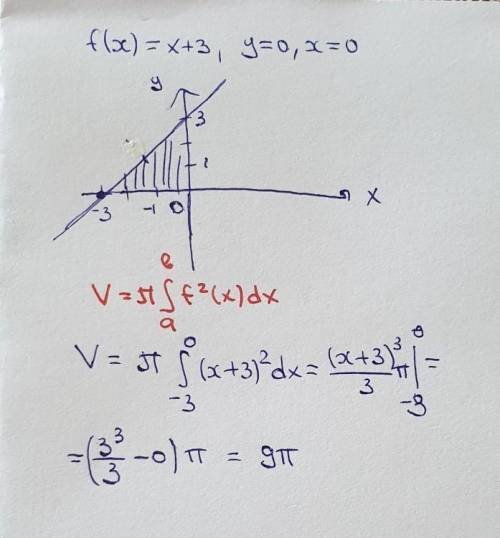 f(x) = x+3, y=0, x=0
y
3
1
-3 -1 0 x
V = π∫ₐᵇ f²(x)dx
V = π ∫₋₃⁰ (x+3)²dx = (x+3)³/3 π |₋₃⁰ =
= (3³/3 - 0) π = 9π